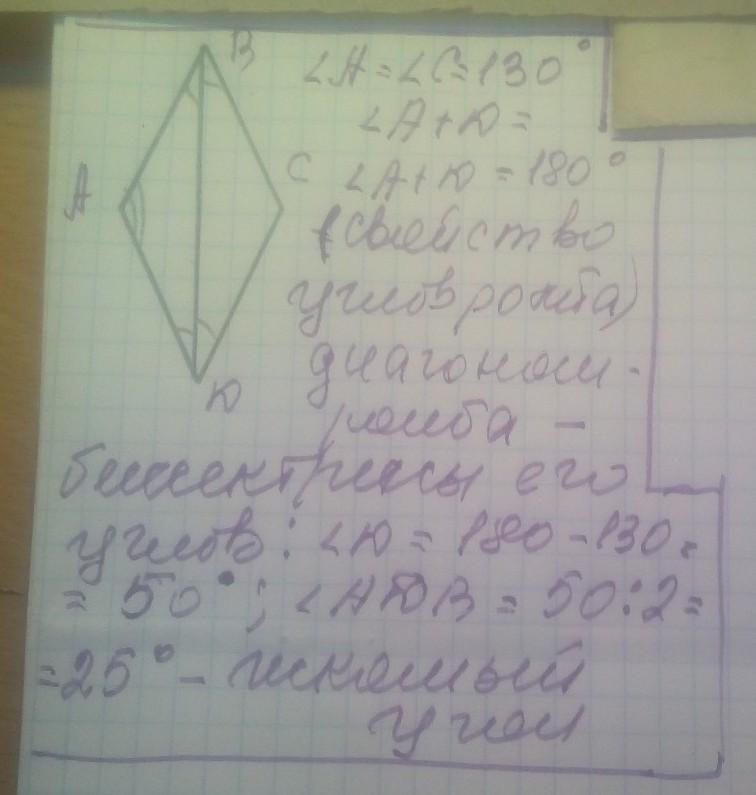 B
∠A=∠C=130°
∠A+Ю=
A
C
∠A+Ю=180°
(свойство
углов ромба)
диагонали
Ю
ромба -
биссектрисы его
углов: ∠Ю=180-130=
=50°; ∠AЮB=50:2=
=25°- искомый
угол